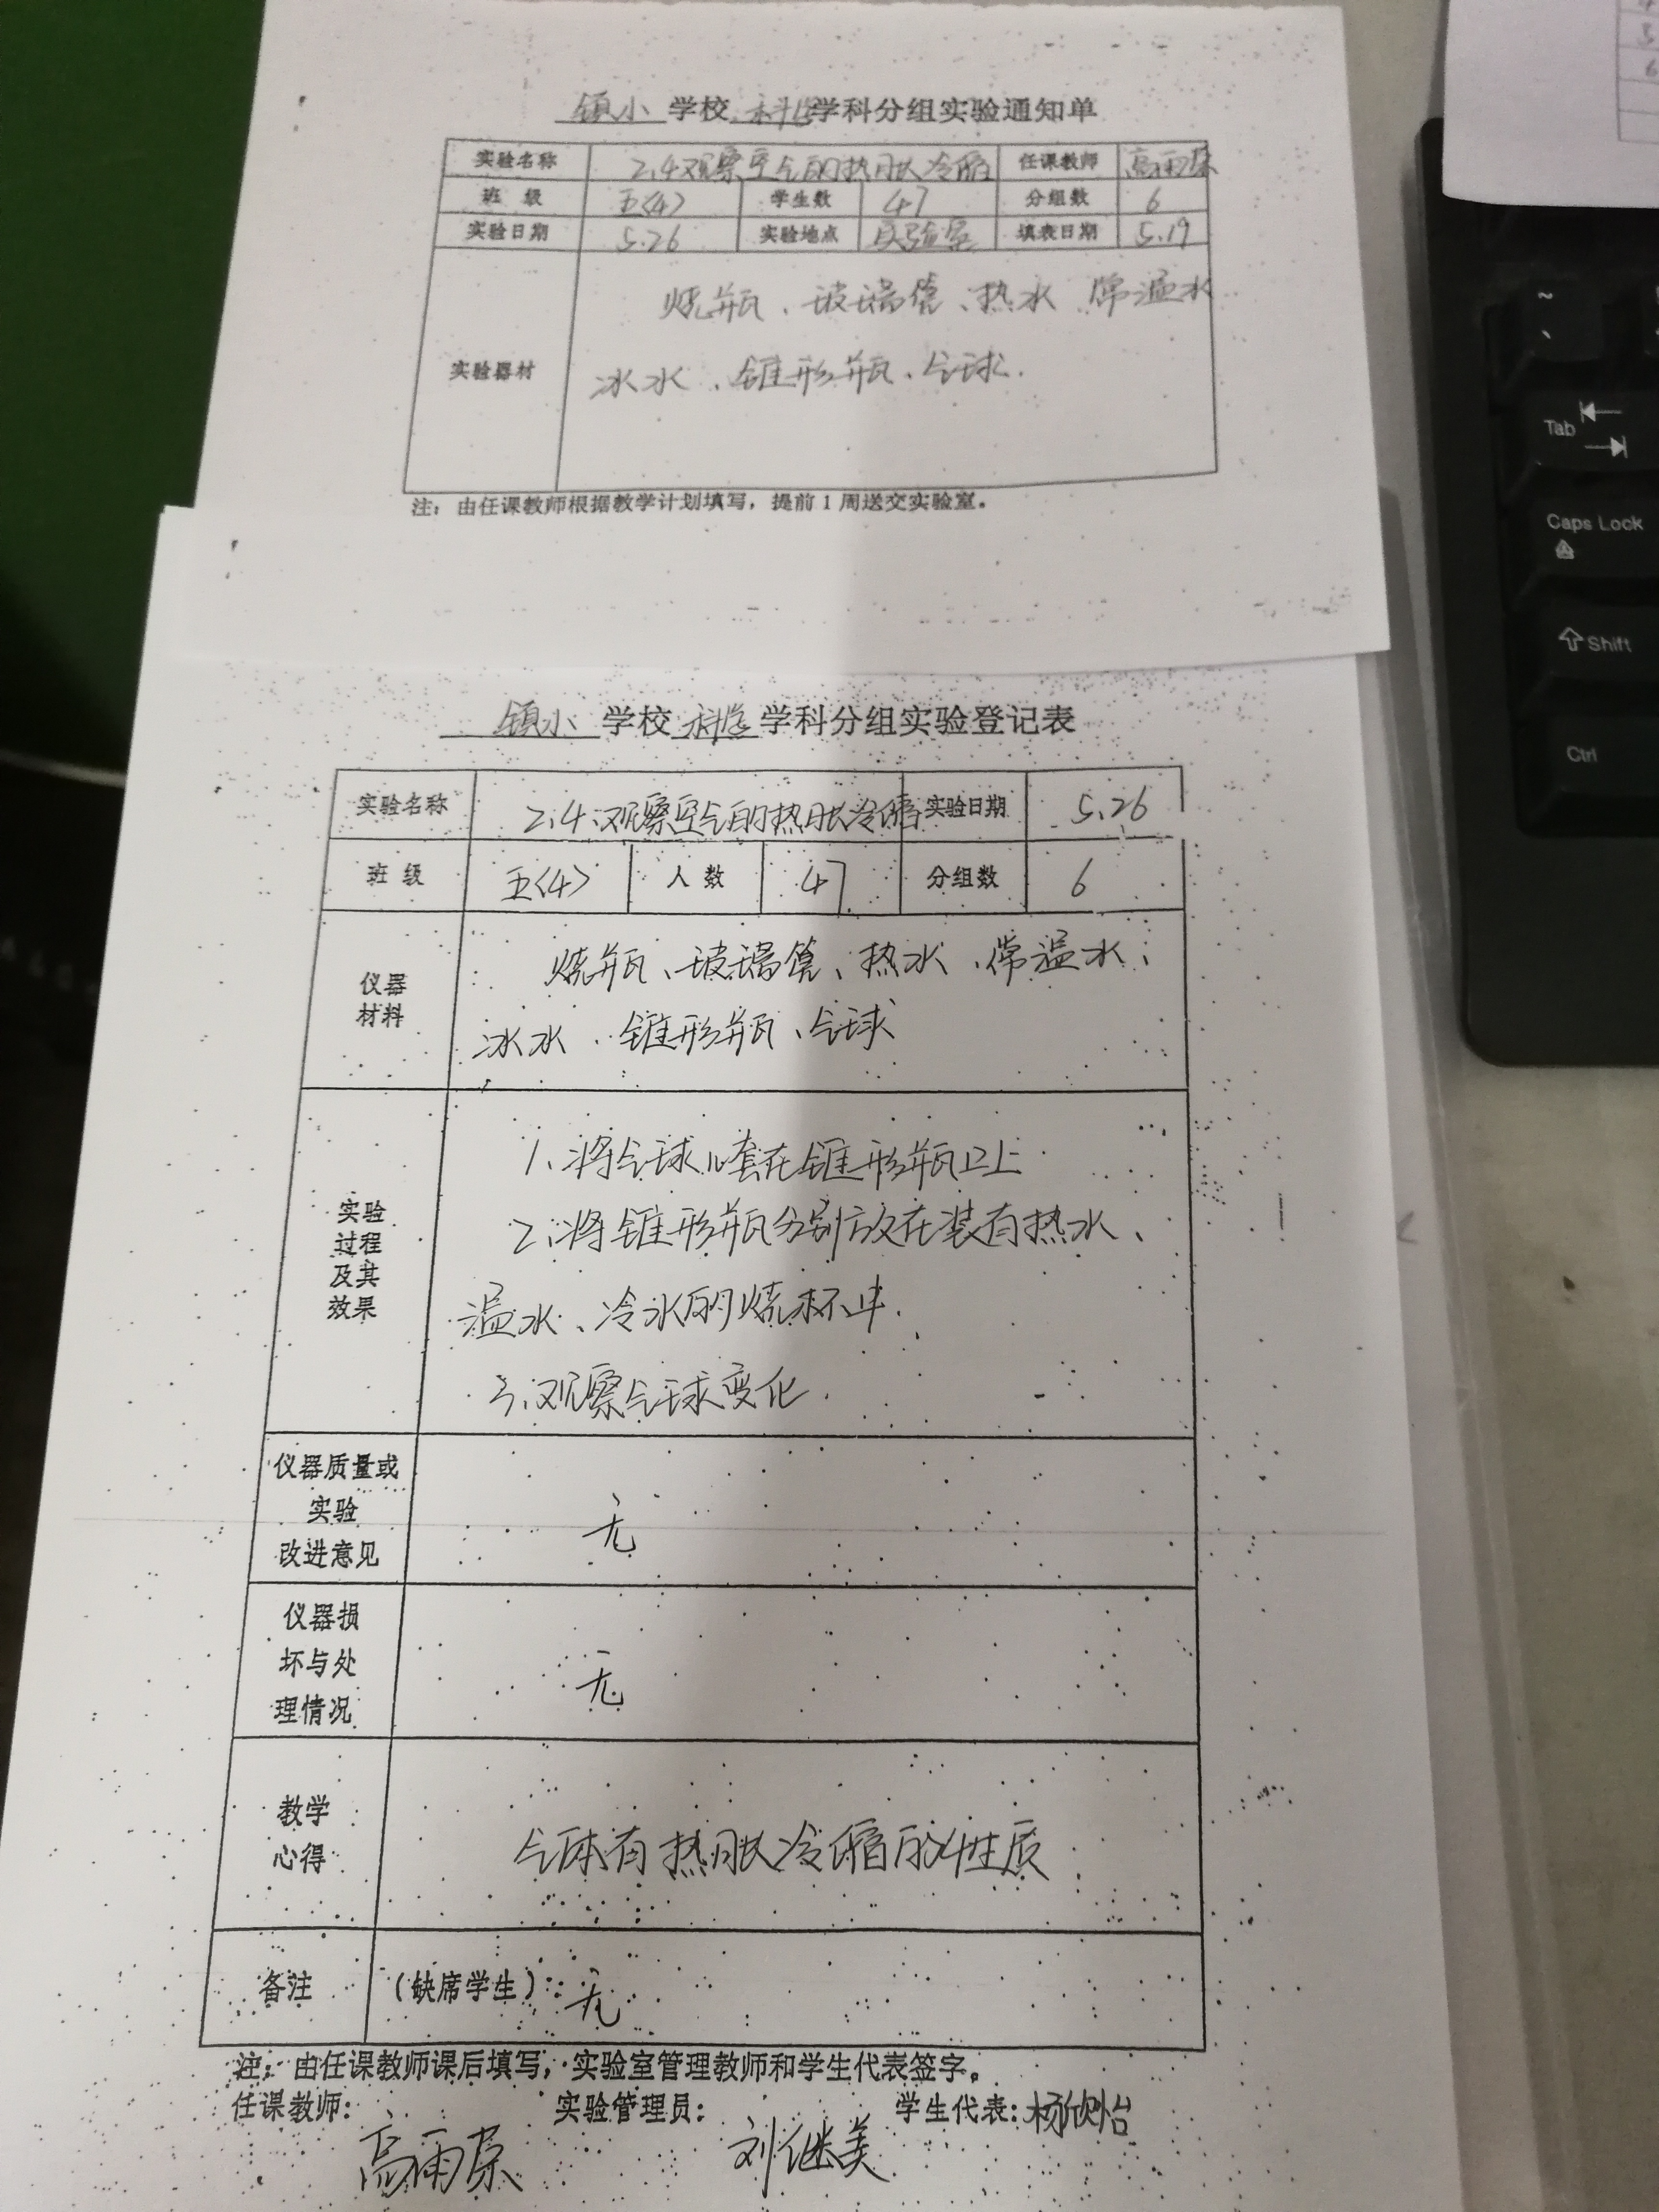 镇小 学校 科学 学科分组实验通知单
实验名称 2.4观察空气的热胀冷缩 任课教师 高雨荪
班 级 五<4> 学生数 47 分组数 6
实验日期 5.26 实验地点 实验室 填表日期 5.19
烧瓶、玻璃管、热水、常温水
实验器材 冰水、锥形瓶、气球.
注：由任课教师根据教学计划填写，提前1周送交实验室。
镇小 学校 科学 学科分组实验登记表
实验名称 2.4.观察空气的热胀冷缩 实验日期 5.26
班 级 五<4> 人 数 47 分组数 6
仪器
材料
烧瓶、玻璃管、热水、常温水、
冰水、锥形瓶、气球
实验
过程
及其
效果
1、将气球儿套在锥形瓶口上
2、将锥形瓶分别放在装有热水、
温水、冷水的烧杯中.
3、观察气球变化.
仪器质量或
实验
改进意见
无
仪器损
坏与处
理情况
无
教学
心得
气体有热胀冷缩的性质
备注 （缺席学生）：无
注：由任课教师课后填写，实验室管理教师和学生代表签字。
任课教师： 实验管理员： 学生代表：杨欣怡
高雨荪 刘继美
Tab
Caps Lock
Shift
Ctrl